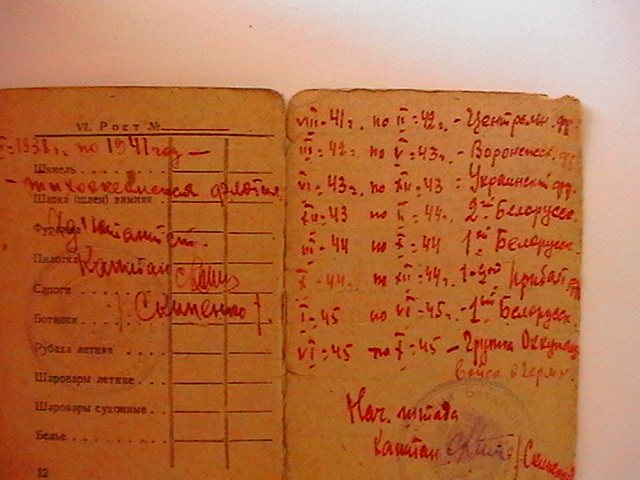 VI. Рост №
1938г. по 1941 год —
Шинель
- тихоокеанский флот
Шапка (шлем) зимняя
Фуражка
Адъютант
Пилотка
Капитан
Сапоги
/Скименко/
Ботинки
Рубаха летняя
Шаровары летние
Шаровары суконные
Белье
12
VIII-41г. по II-42г. - Централн. фр.
III-42 по V-43г. - Воронежск. фр.
VI-43г. по XII-43 - Украинский фр.
XII-43 по II-44г. 2ой Белорусск.
III-44 по X-44 1ый Белорусск.
X-44г. по XII-44г. 1-ый Прибал. фр.
I-45 по VI-45г. - 1ый Белорусск.
VI-45 по X-45 - Группа Оккупац.
войск в Герм.
Нач. штаба
Капитан